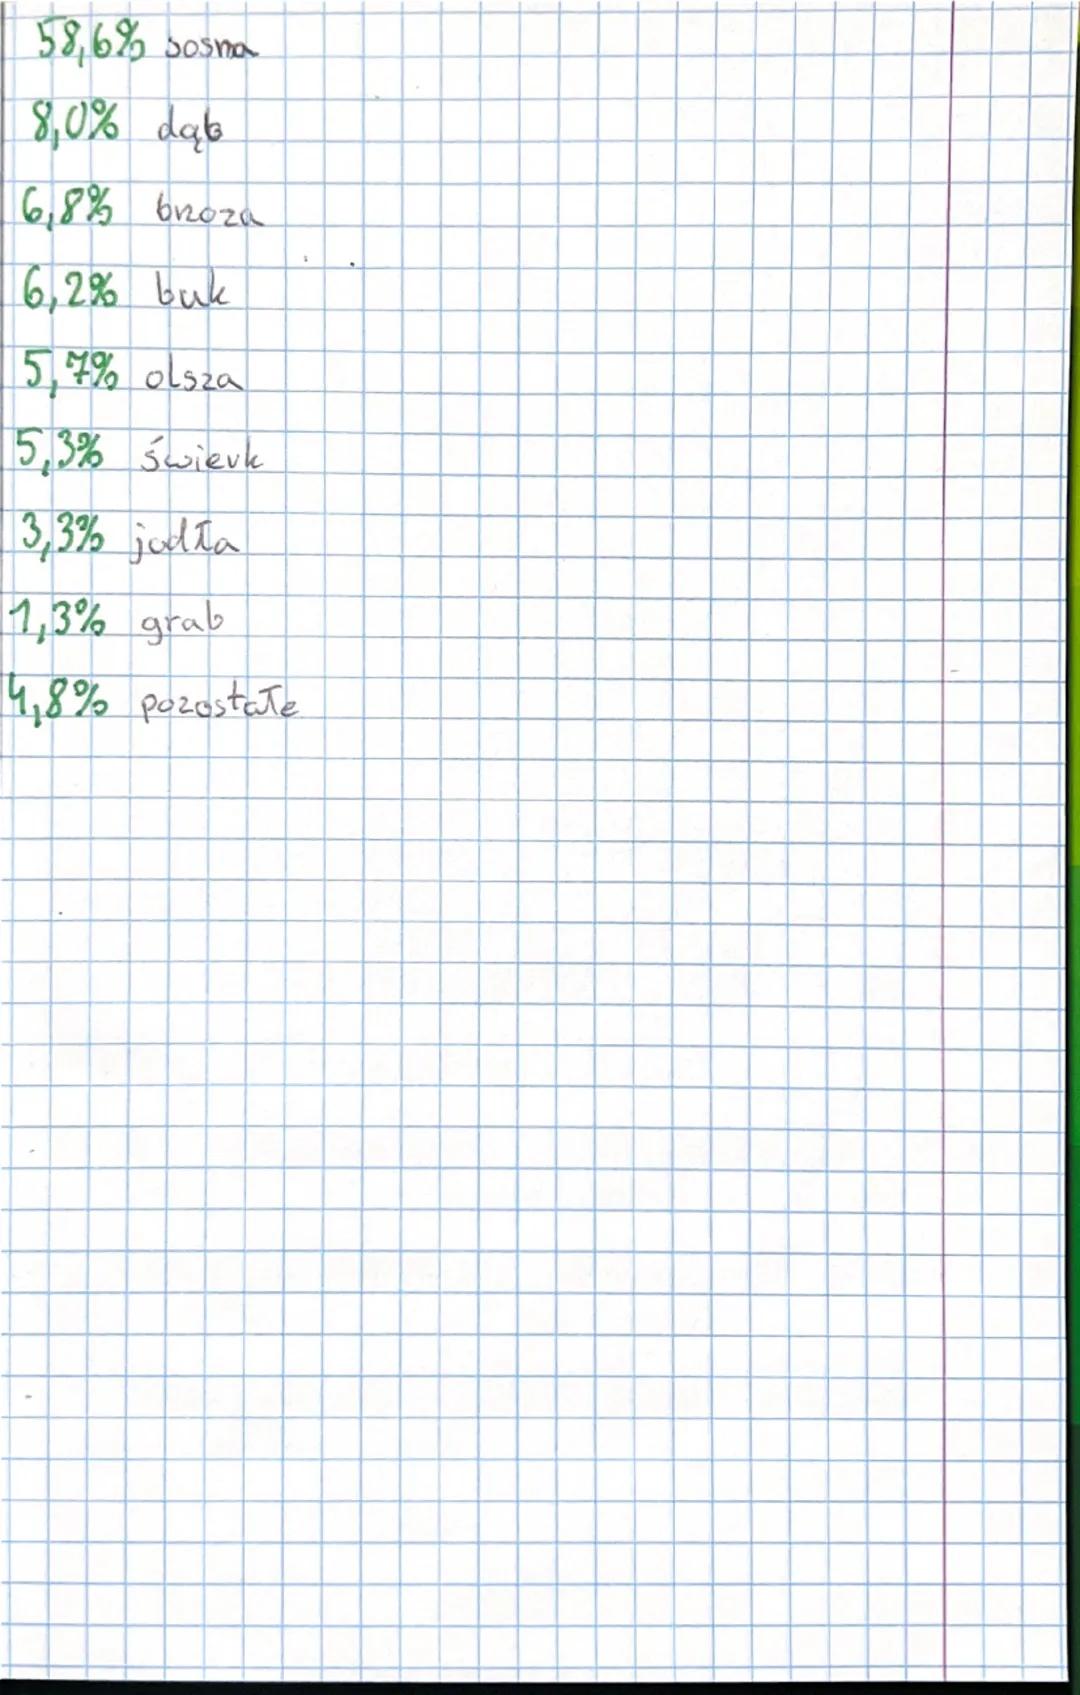 58,6% sosna
8,0% dąb
6,8% brzoza
6,2% buk
5,7% olsza
5,3% świerk
3,3% jodła
1,3% grab
4,8% pozostałe